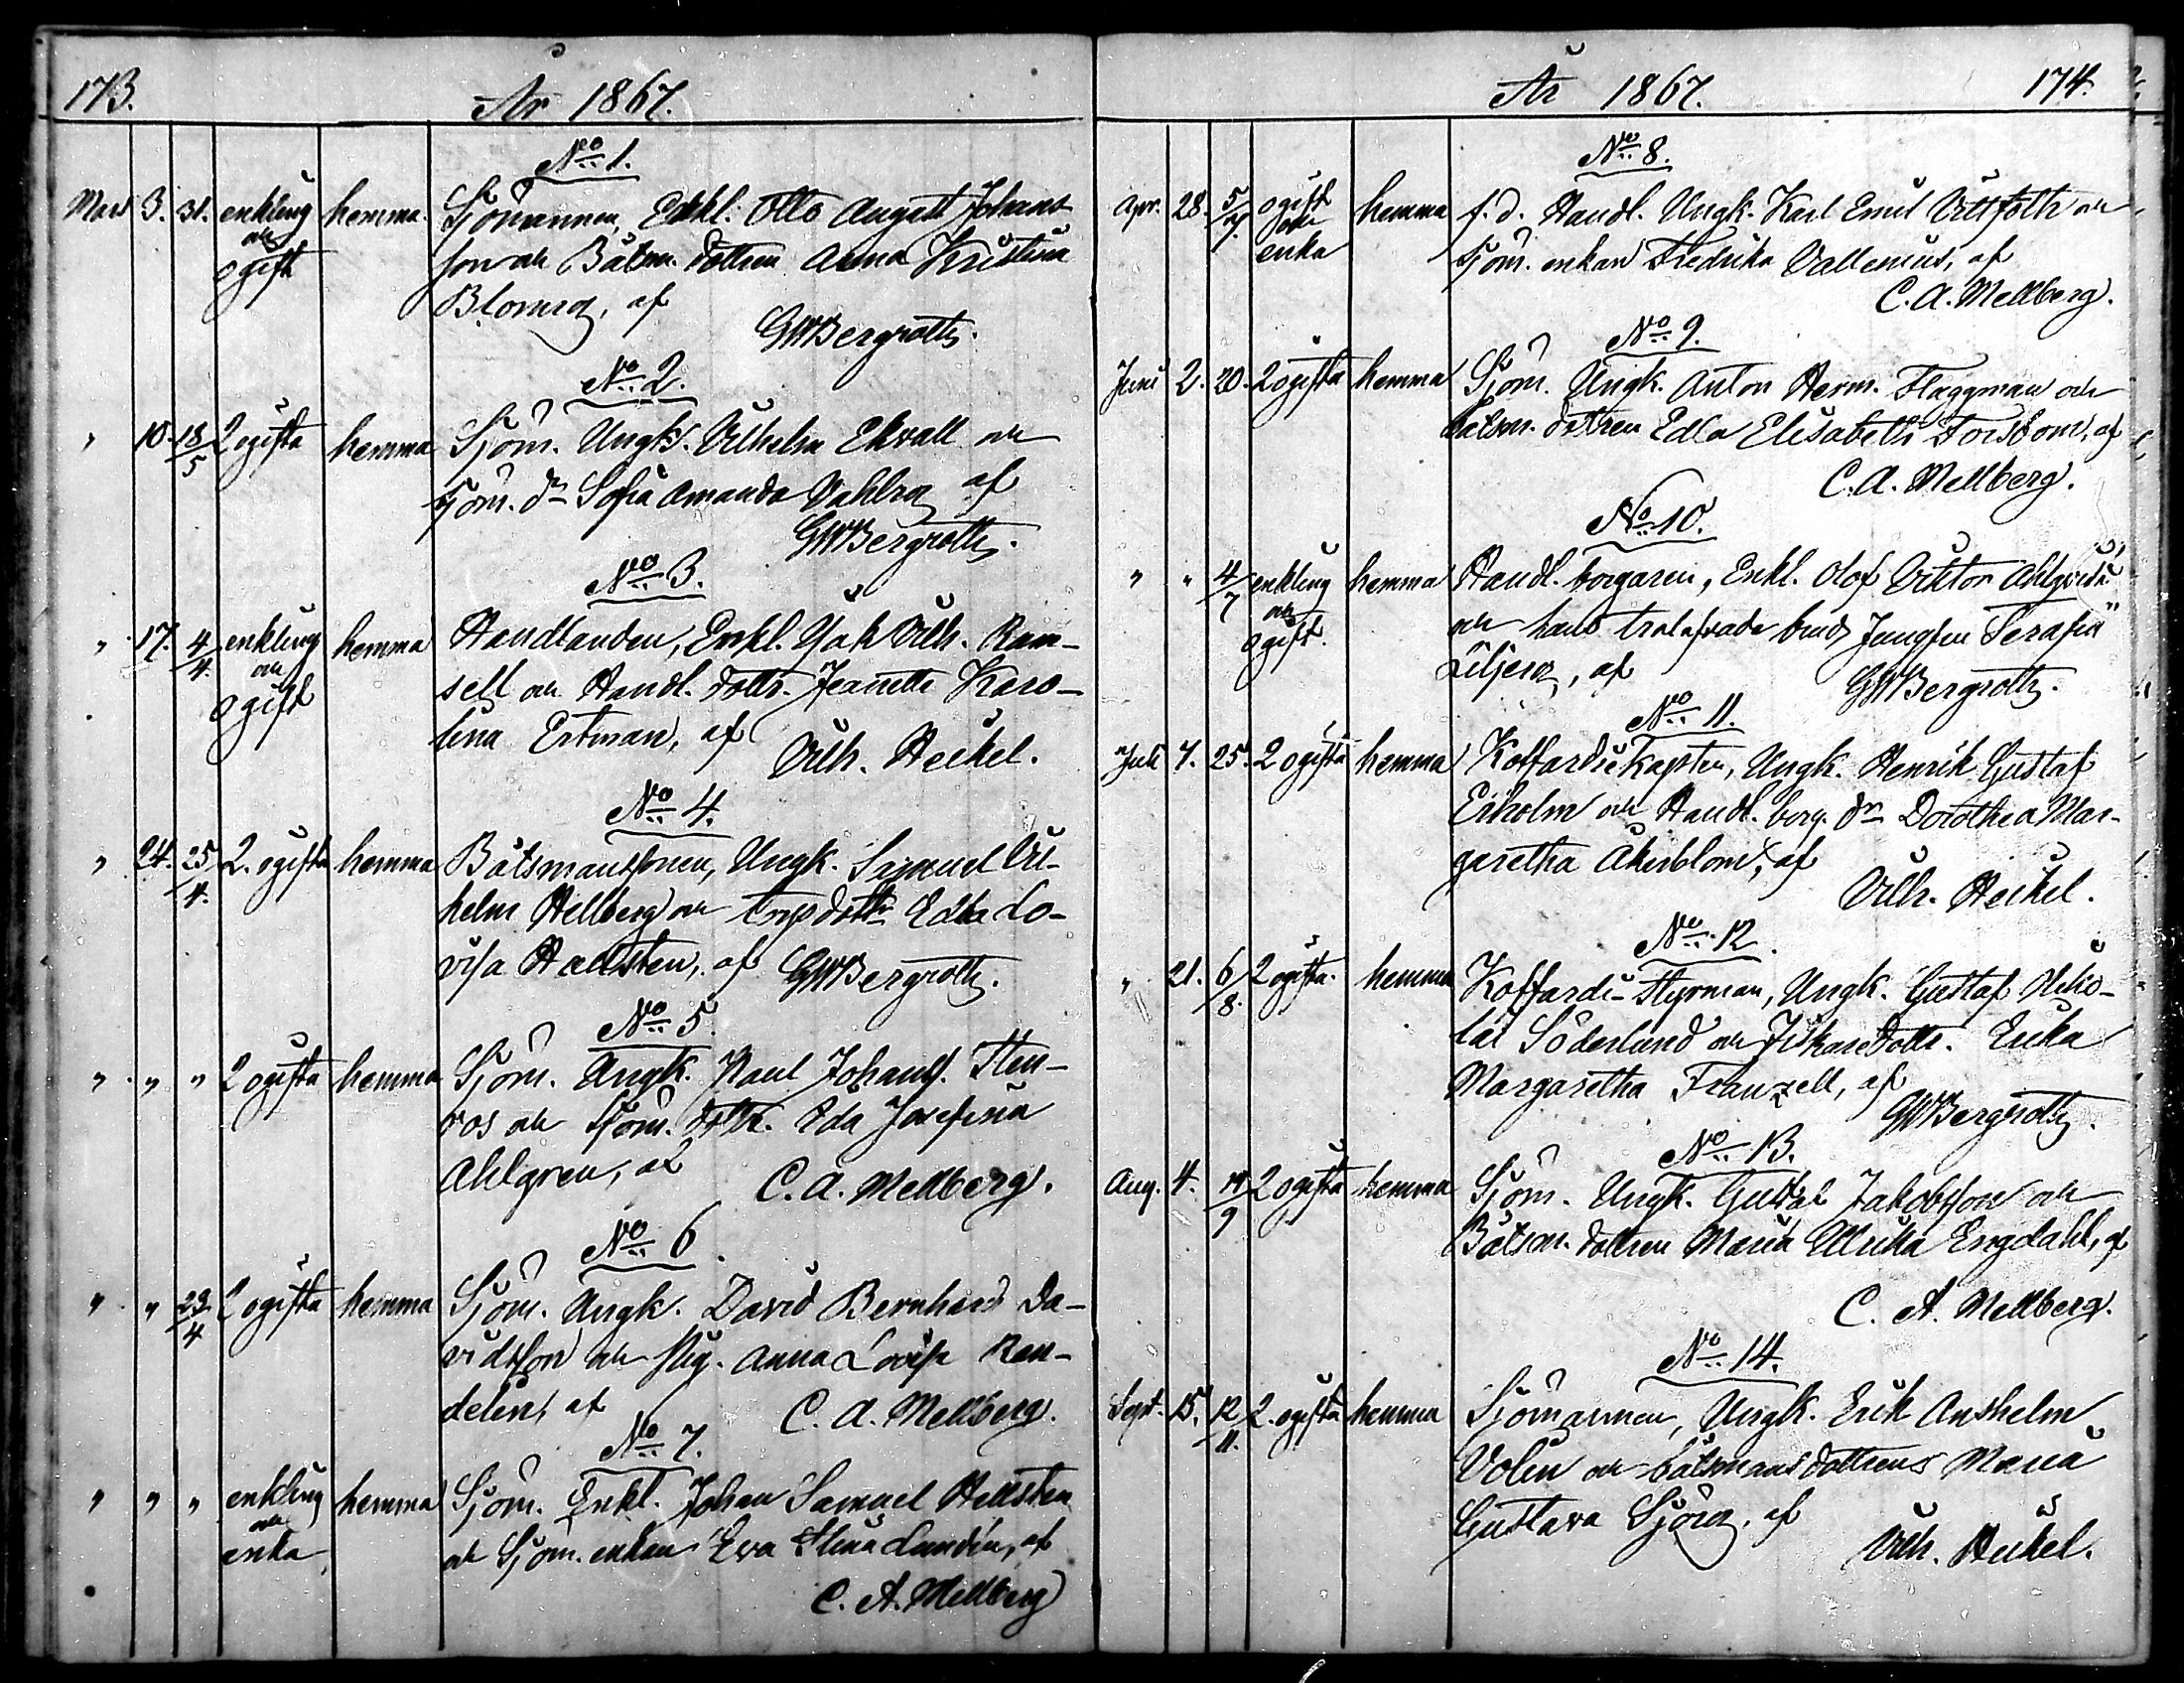 173.
År 1867.
No 1.
Mars 3. 31. enkling och ogift hemma. Sjömannen, Enkl. Otto August Johans
son och Båtsm. dottren Anna Kristina
Blomrq, af
GWBergroth.
No 2.
" 10. 18/5 2 ogifta hemma Sjöm. Ungk. Vilhelm Ekvall och
sjöm. dr Sofia Amanda Vahlrq af
GWBergroth.
No 3.
" 17. 4/4. enkling och ogift hemma Handlanden, Enkl. Jak Vilh. Ram-
sell och Handl. dottr. Jeanette Karo-
lina Ertman, af
Vilh. Heikel.
No 4.
" 24. 25/4. 2. ogifta hemma Båtsmanssonen, Ungk. Samuel Vil-
helm Hellberg och dottr Edla Lo-
visa Hallsten, af GWBergroth.
No 5.
" " " 2 ogifta hemma Sjöm. Ungk. Karl Johans. Sten-
ros och Sjöm. dottr. Ida Josefina
Ahlgren, af
C. A. Mellberg.
No 6.
" " 29/4 2 ogifta hemma Sjöm. Ungk. David Bernhard Da-
vidsson och pig. Anna Lovisa Ren-
delin, af
C. A. Mellberg.
No 7.
" " " enkling och enka hemma Sjöm. Enkl. Johan Samuel Hellsten
och Sjöm. enkan Eva Stina Lundin, af
C. A. Mellberg
År 1867.
174.
No 8.
Apr. 28. 5/7. ogift och enka hemma f. d. Handl. Ungk. Karl Emil
sjöm. enkan Fredrika Vallenius, af
C. A. Mellberg.
No 9.
Juni 2. 20. 2 ogifta hemma Sjöm. Ungk. Anton Herm. Flaggman och
båtsm. dottren Edla Elisabeth Forsbom, af
C. A. Mellberg.
No 10.
" " 4/7 enkling och ogift. hemma Handl. borgaren, Enkl. Olof Viktor
och hans trolofvade brud Jungfrun Serafia
Liljerq, af
GWBergroth.
No 11.
Juli 7. 25. 2 ogifta hemma Koffardiekapten, Ungk. Henrik Gustaf
Erholm och Handl. borg. dr Dorothea Mar-
garetha Åkerblom, af
Vilh. Heikel.
No 12.
" 21. 6/8. 2 ogifta. hemma Koffardi-Styrman, Ungk. Gustaf Niko-
lai Söderlund och Fiskaredottr. Erika
Margaretha Franzell, af
GWBergroth.
No 13.
Aug. 4. 19/9 2 ogifta hemma Sjöm. Ungk. Gustaf Jakobsson och
Båtsm. dottren Maria Ulrika Engdahl, af
C. A. Mellberg.
No 14.
Sept. 15. 12/11. 2. ogifta hemma Sjömannen, Ungk. Erik Anshelm
Volin och båtsmansdottrens Maria
Gustava Sjörq, af
Vilh. Heikel.